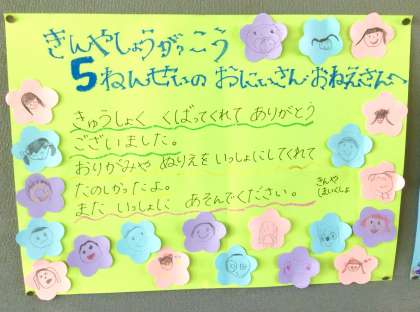 きんやしょうがっこう
5ねんせいの おにいさん・おねえさんへ
きゅうしょく くばってくれて ありがとう
ございました。
おりがみや ぬりえを いっしょにしてくれて
たのしかったよ。
また いっしょに あそんでください。
きんや
ほいくしょ